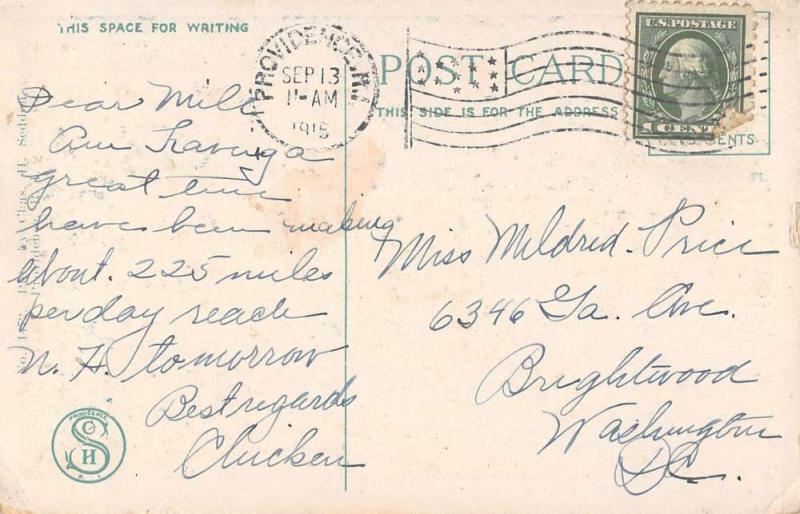 THIS SPACE FOR WRITING
PROVIDENCE, R.I.
SEP 13
11-AM
1915
POST CARD
THIS SIDE IS FOR THE ADDRESS
U.S. POSTAGE
1 CENT
CENTS.
Dear Mill
Am having a
great time
have been making
about. 225 miles
per day reach
N. H. tomorrow
Best regards
Chicken
Miss Mildred. Price
6346 Ga. Ave.
Brightwood
Washington
D.C.
PROVIDENCE
S C H
R. I.